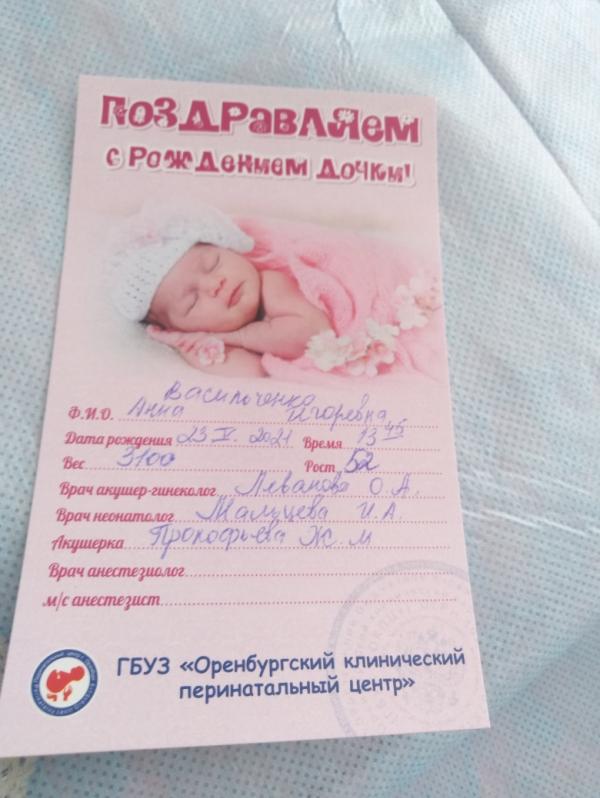 ПОЗДРАВЛЯЕМ
С РОЖДЕНИЕМ ДОЧКИ!
Васильченко
Ф.И.О. Анна Игоревна
Дата рождения 23 IV. 2021 Время 13 45
Вес 3100 Рост 52
Врач акушер-гинеколог Леванова О.А.
Врач неонатолог Мальцева И.А.
Акушерка Прокофьева Ж.М
Врач анестезиолог
м/с анестезист
ГБУЗ «Оренбургский клинический
перинатальный центр»